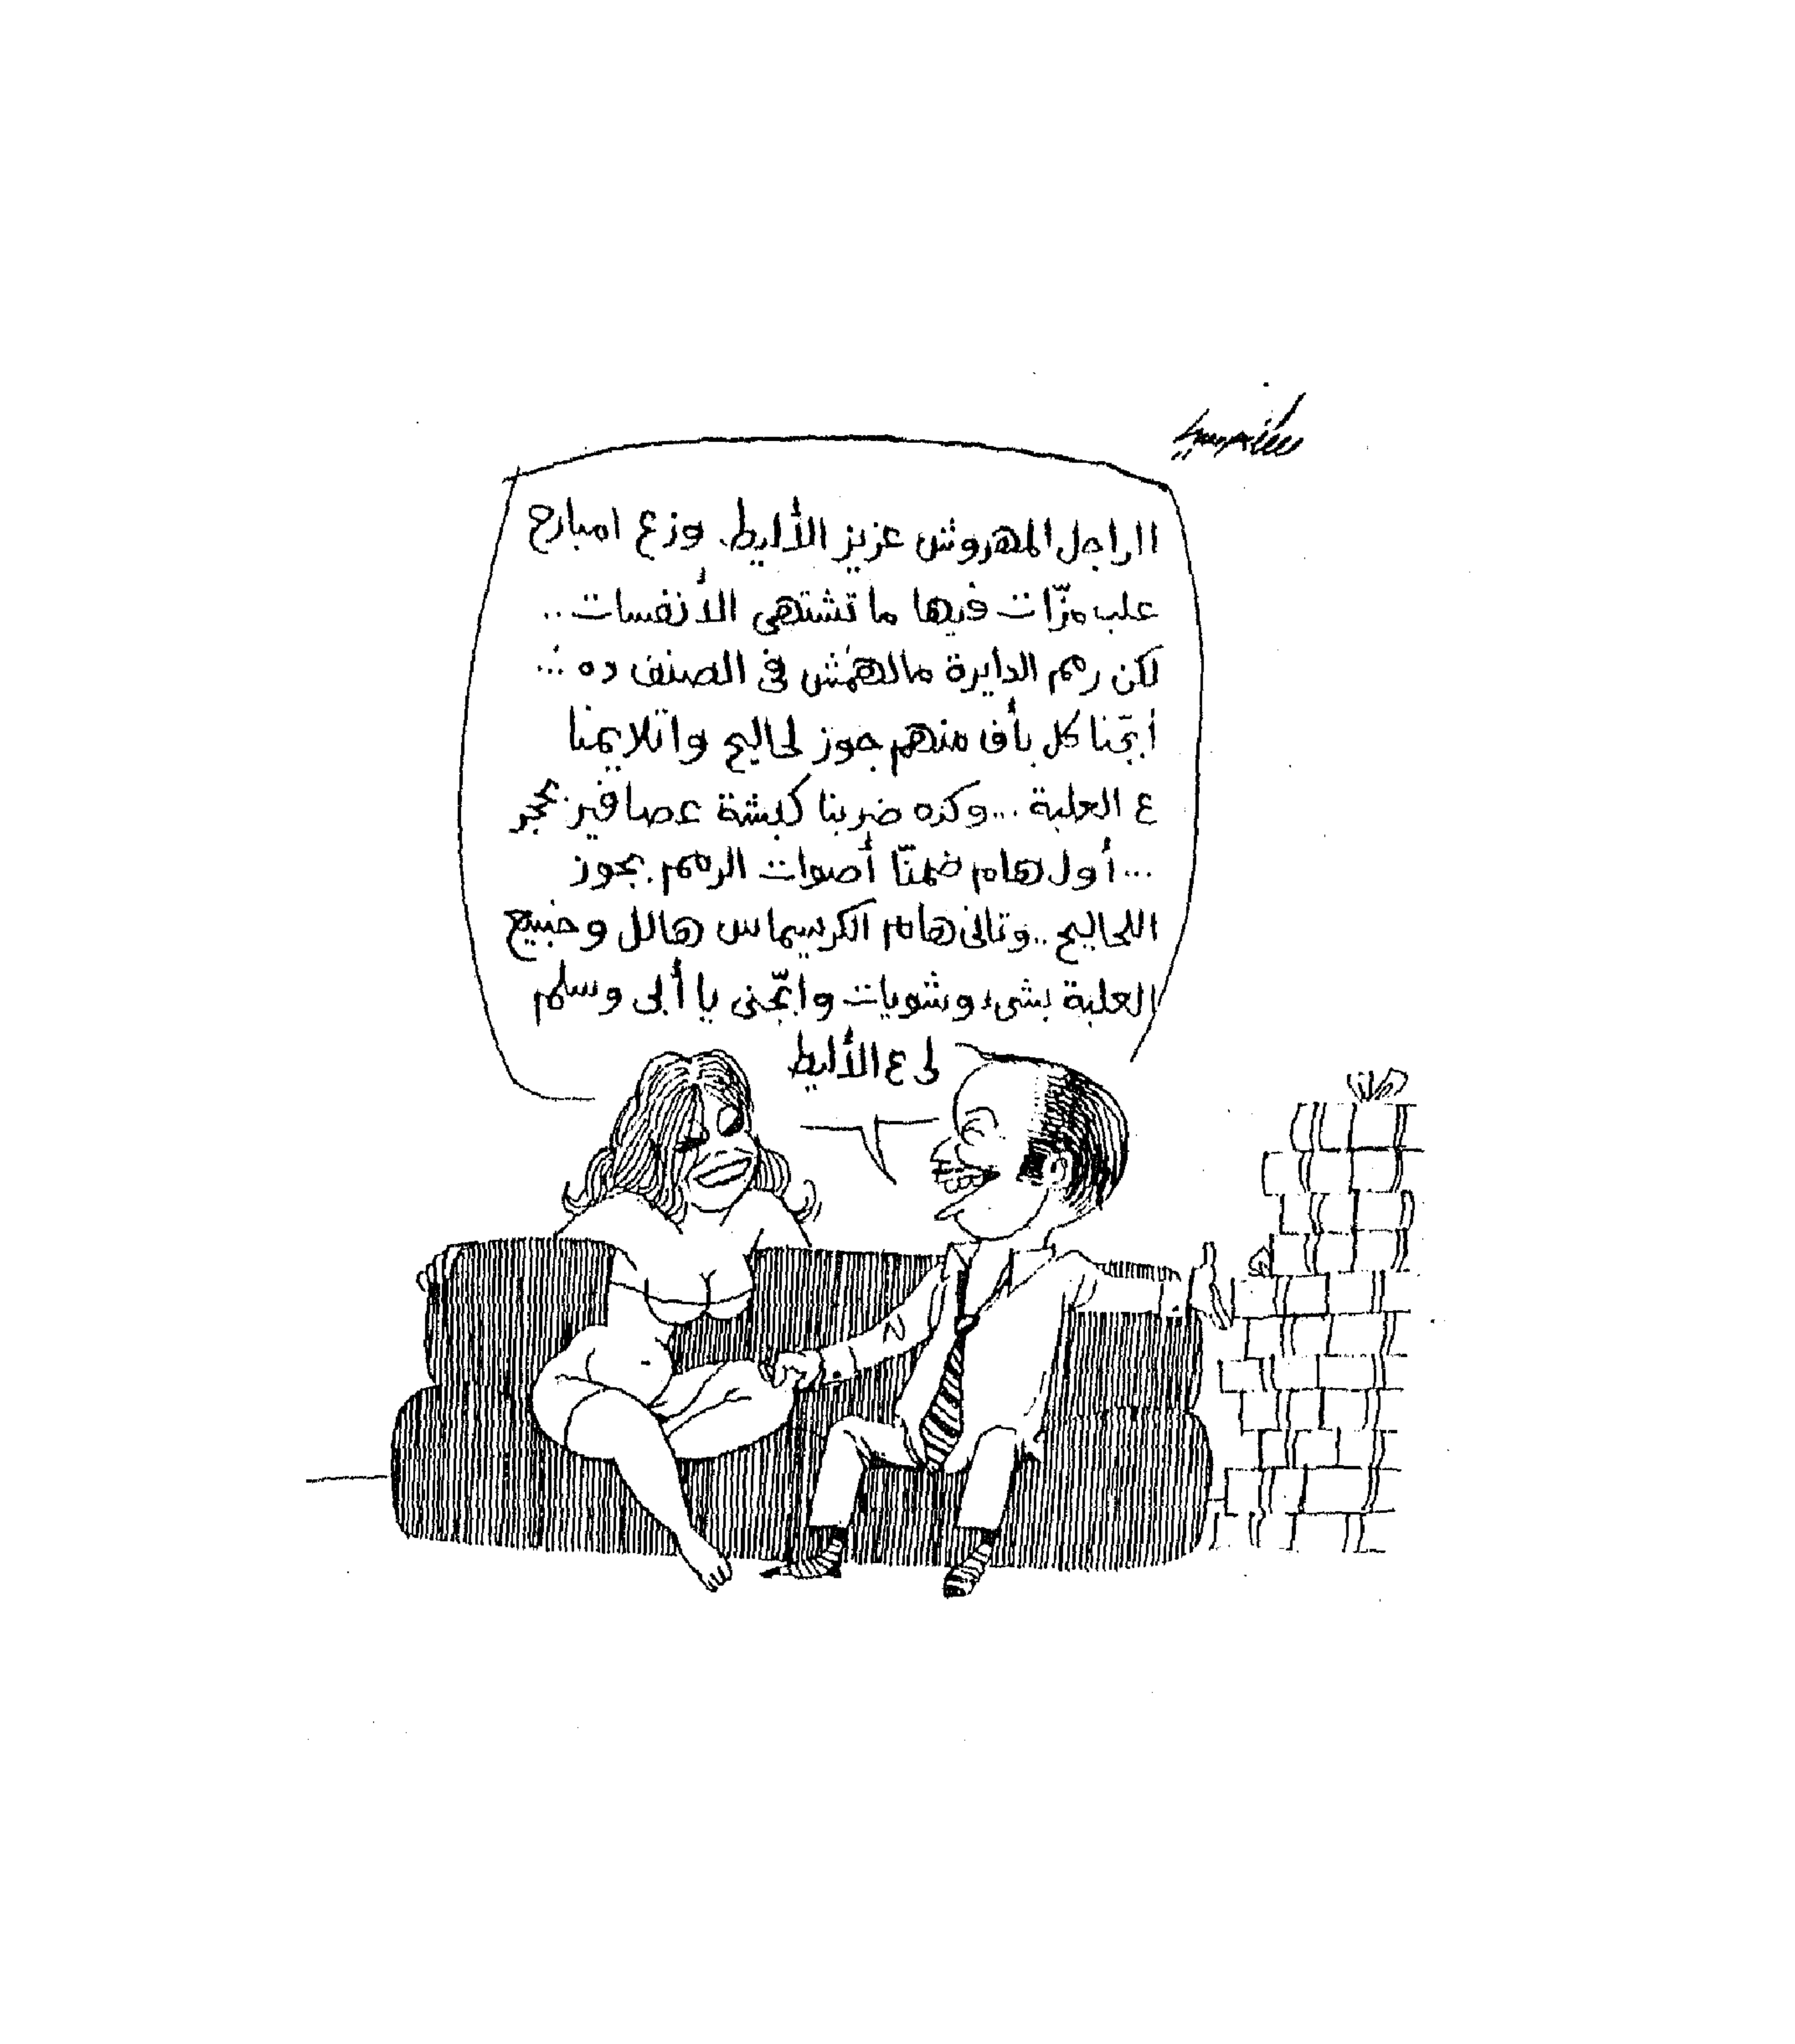 الراجل المهروش عزيز الأليط. وزع امبارح
علب مزّات فيها ما تشتهى الأنفسات ..
لكن رمم الدايرة مالهمش فى الصنف ده ...
أبّجنا كل بأف منهم جوز لحاليح واتلايمنا
ع العلبة ... وكده ضربنا كبشة عصافير بحجر
... أول هام ضمنّا أصوات الرمم. بجوز
اللحاليح .. وتانى هام الكرسيماس هالل وحنبيع
العلبة بشىء وشويات وابّجنى يا أبى وسلم
لى ع الأليط